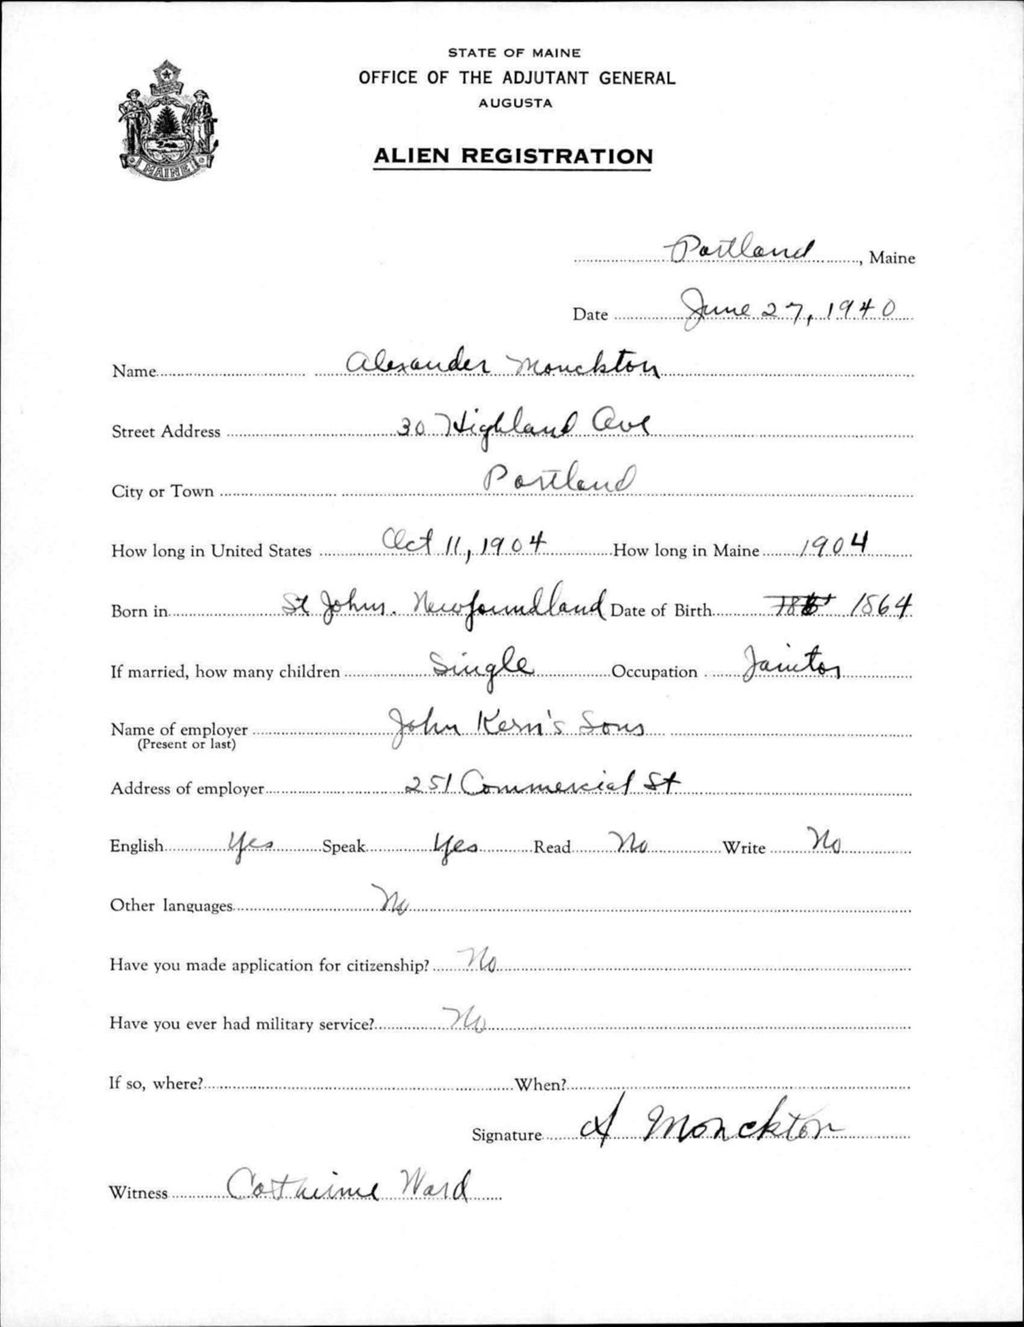 STATE OF MAINE
OFFICE OF THE ADJUTANT GENERAL
AUGUSTA
ALIEN REGISTRATION
MAINE
Portland, Maine
Date June 27, 1940
Name Alexander Monckton
Street Address 30 Highland Ave
City or Town Portland
How long in United States Oct 11, 1904 How long in Maine 1904
Born in St Johns. Newfoundland Date of Birth 1864
If married, how many children Single Occupation Janitor
Name of employer John Kern's Sons
(Present or last)
Address of employer 251 Commercial St
English Yes Speak Yes Read No Write No
Other languages No
Have you made application for citizenship? No
Have you ever had military service? No
If so, where? When?
Signature A Monckton
Witness Catherine Ward